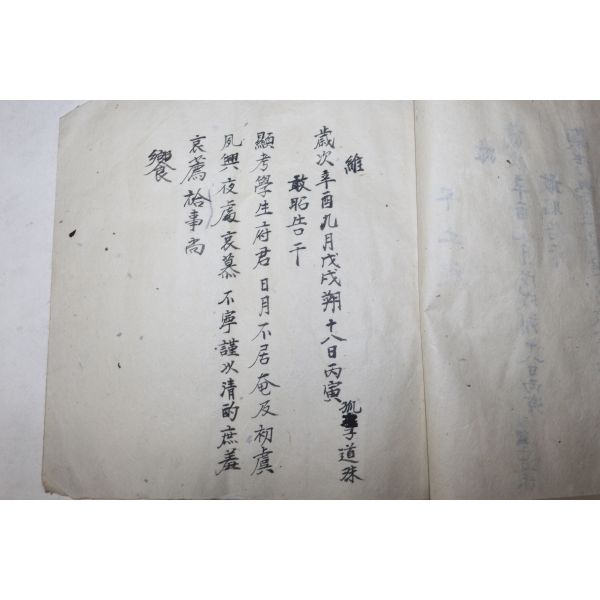 維
歲次辛酉九月戊戌朔十八日丙寅孤子道珠
敢昭告于
顯考學生府君日月不居奄及初虞
夙興夜處哀慕不寧謹以清酌庶羞
哀薦祫事尚
饗